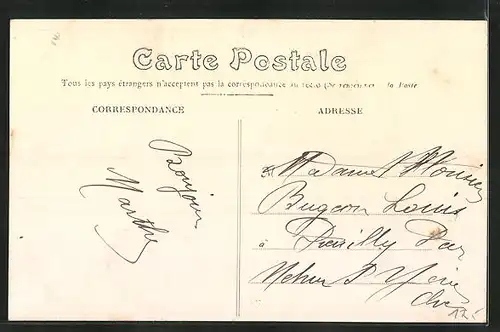 Carte Postale
Tous les pays étrangers n'acceptent pas la correspondance au recto (Se renseigner à la Poste
CORRESPONDANCE
ADRESSE
Bonjour
Marthe
Madame Monsieur
Bugeon Louis
à Preuilly Par
Mehun s/ Yèvre
Cher